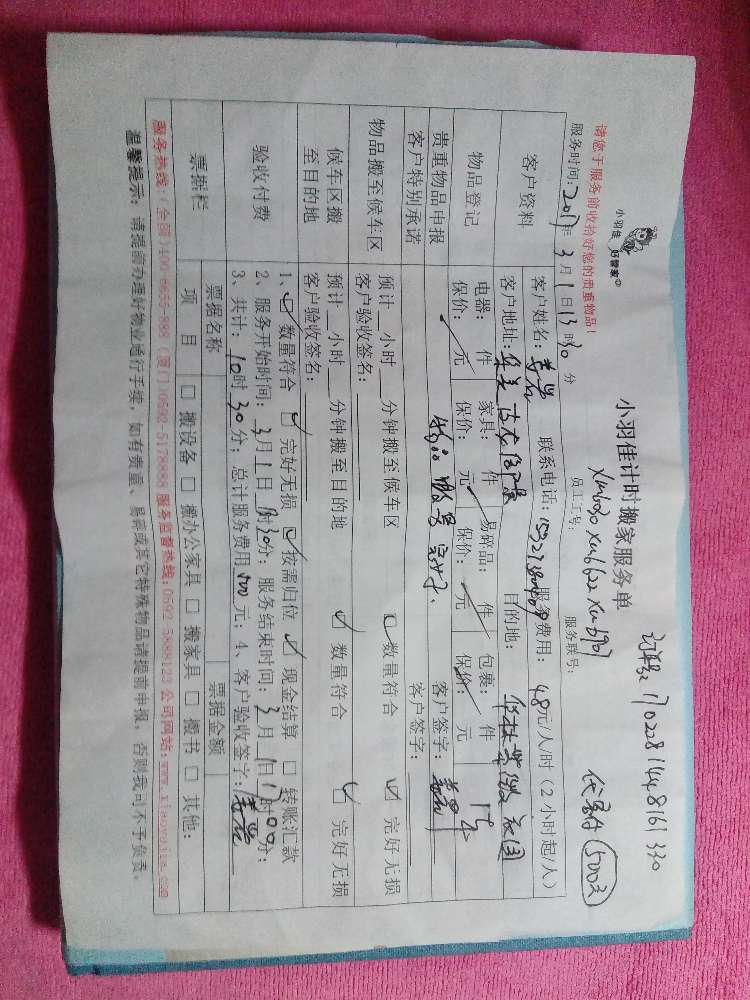 小羽佳 好管家
小羽佳计时搬家服务单
订单号:1702281448161330
代寄付 500元
请您于服务前收拾好您的贵重物品!
员工工号:
服务联号:
服务时间:2017年3月1日13时30分
客户资料
客户姓名:
联系电话:
服务费用:48元/人/时(2小时起/人)
客户地址:
目的地:
物品登记
电器: 件 家具: 件 易碎品: 件 包裹: 件
保价: 元 保价: 元 保价: 元 保价: 元
贵重物品申报
客户签字:
客户特别承诺
客户签字:
物品搬至候车区
预计 小时 分钟搬至候车区 数量符合 完好无损
客户验收签名:
候车区搬至目的地
预计 小时 分钟搬至目的地 数量符合 完好无损
客户验收签名:
验收付费
1、数量符合 完好无损 按需归位 现金结算 转账汇款
2、服务开始时间:3月1日 时30分;服务结束时间:3月1日 时00分;
3、共计:10时30分;总计服务费用500元;4、客户验收签字:
票据栏
票据名称 票据金额
项目 搬设备 搬办公家具 搬家具 搬书 其他:
服务热线:(全国)400-6655-888 (厦门)0592-5178888 服务监督热线:0592-5889123 公司网站:www.xiaoyujia.com
温馨提示:请提前办理好物业通行手续,如有贵重、易碎或其它特殊物品请提前申报,否则我司不予负责。